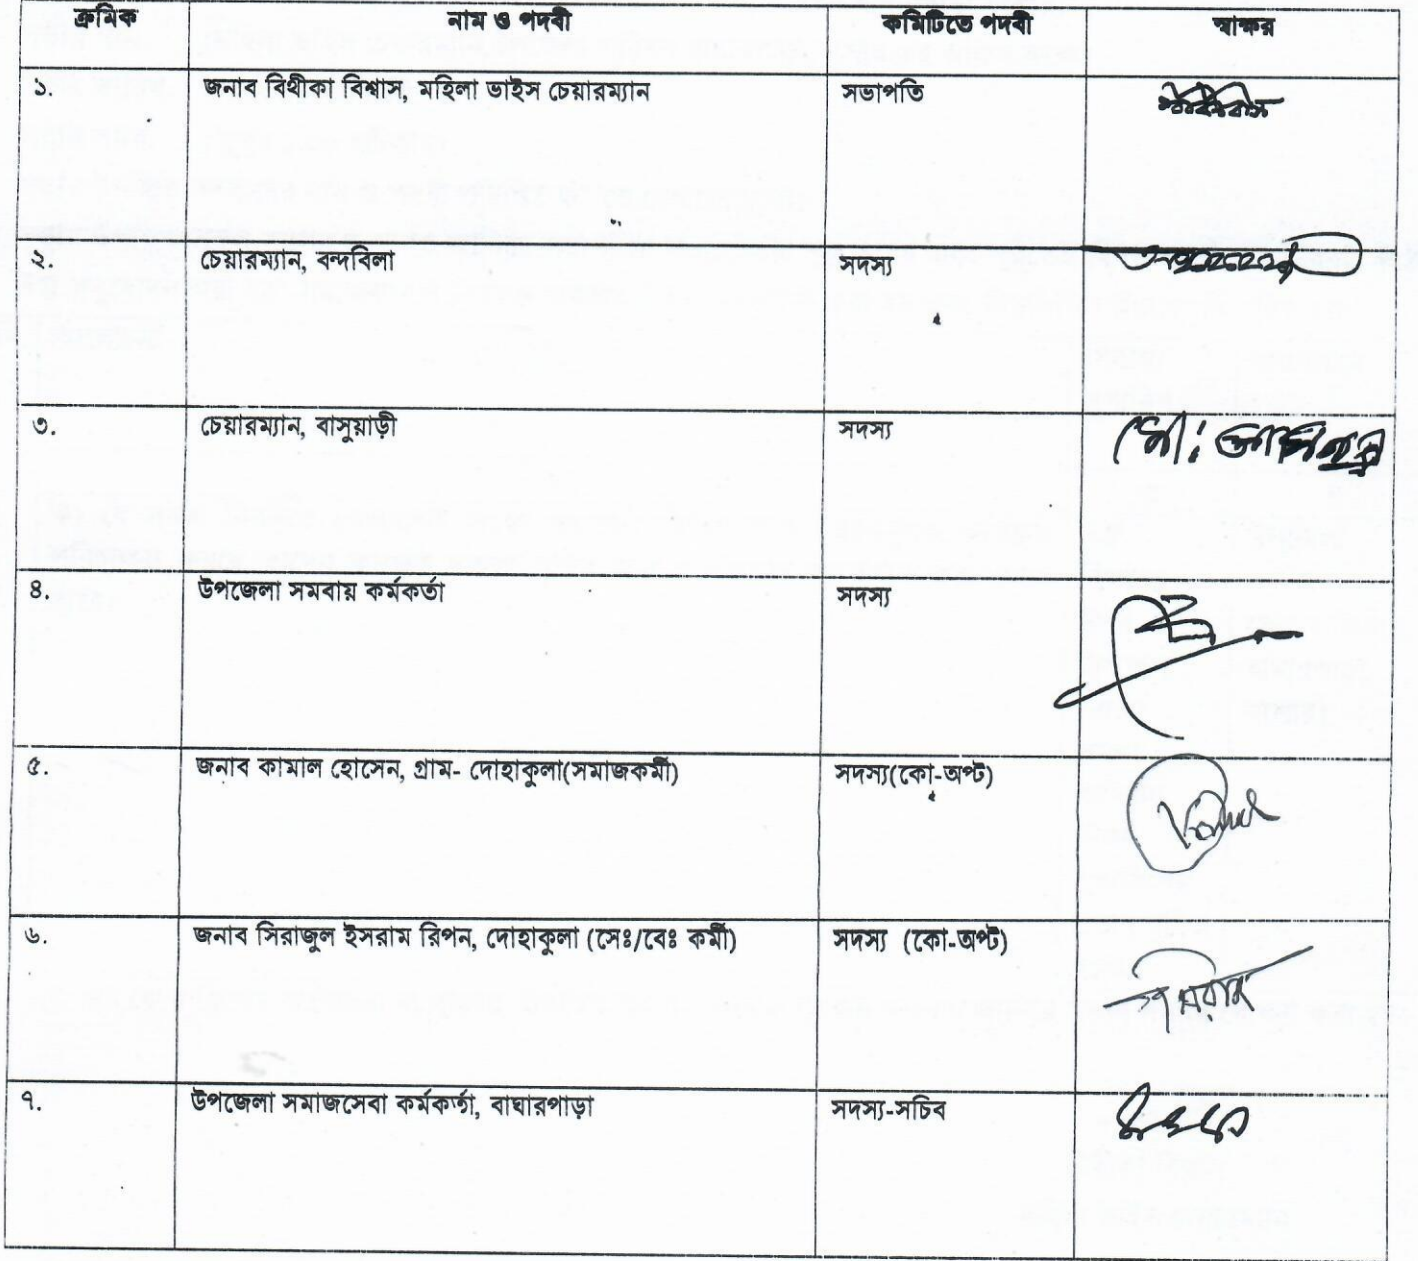 ক্রমিক নাম ও পদবী কমিটিতে পদবী স্বাক্ষর
১. জনাব বিথীকা বিশ্বাস, মহিলা ভাইস চেয়ারম্যান সভাপতি
২. চেয়ারম্যান, বন্দবিলা সদস্য
৩. চেয়ারম্যান, বাসুয়াড়ী সদস্য মো:
৪. উপজেলা সমবায় কর্মকর্তা সদস্য
৫. জনাব কামাল হোসেন, গ্রাম- দোহাকুলা(সমাজকর্মী) সদস্য(কো-অপ্ট)
৬. জনাব সিরাজুল ইসরাম রিপন, দোহাকুলা (সেঃ/বেঃ কর্মী) সদস্য (কো-অপ্ট)
৭. উপজেলা সমাজসেবা কর্মকর্তা, বাঘারপাড়া সদস্য-সচিব